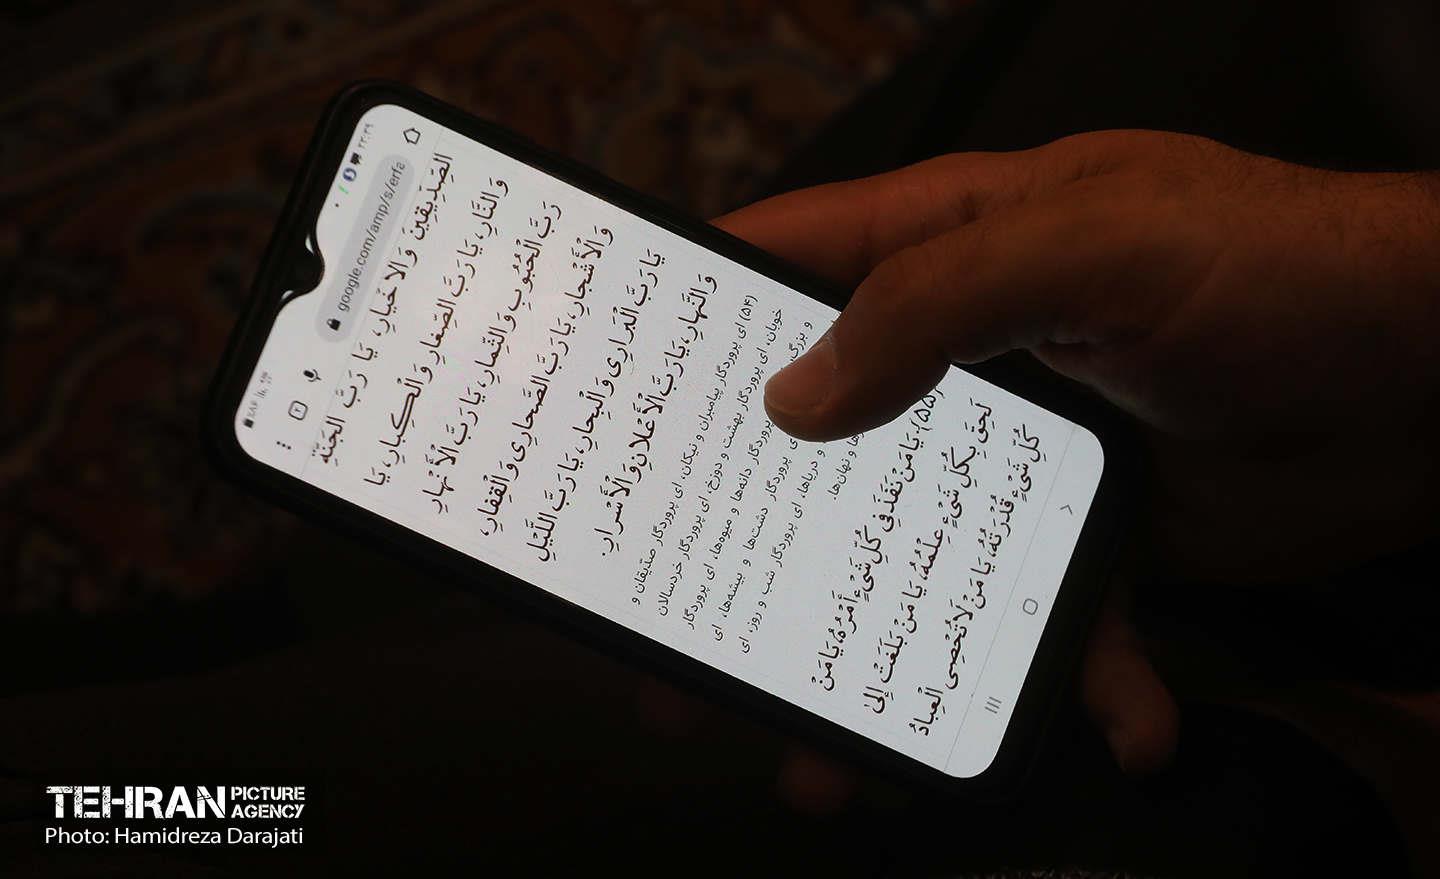 google.com/amp/s/erfa
الصِّدِّيقِينَ وَ الاَخْيارِ، يَا رَبَّ الْجَنَّةِ
وَ النَّارِ، يَا رَبَّ الصِّغارِ وَ الْكِبارِ، يَا
رَبَّ الْحُبُوبِ وَ الثِّمارِ، يَا رَبَّ الْأَنْهارِ
وَ الْأَشْجارِ، يَا رَبَّ الصَّحارِى وَ الْقِفارِ،
يَا رَبَّ الْبَرارِى وَ الْبِحارِ، يَا رَبَّ اللَّيْلِ
وَ النَّهارِ، يَا رَبَّ الْأَعْلانِ وَ الْأَسْرارِ.
(۵۴) ای پروردگار پیامبران و نیکان، ای پروردگار صدّیقان و
خوبان، ای پروردگار بهشت و دوزخ، ای پروردگار خردسالان
و پروردگار دانه‌ها و میوه‌ها، ای پروردگار
پروردگار دشت‌ها و بیشه‌ها، ای
و دریاها، ای پروردگار شب و روز، ای
و نهان‌ها.
(۵۵) يَا مَنْ نَفَذَ فِى كُلِّ شَىْءٍ أَمْرُهُ، يَا مَنْ
لَحِقَ بِكُلِّ شَىْءٍ عِلْمُهُ، يَا مَنْ بَلَغَتْ إِلىٰ
كُلِّ شَىْءٍ قُدْرَتُهُ، يَا مَنْ لَا تُحْصِى الْعِبادُ
TEHRAN PICTURE
AGENCY
Photo: Hamidreza Darajati